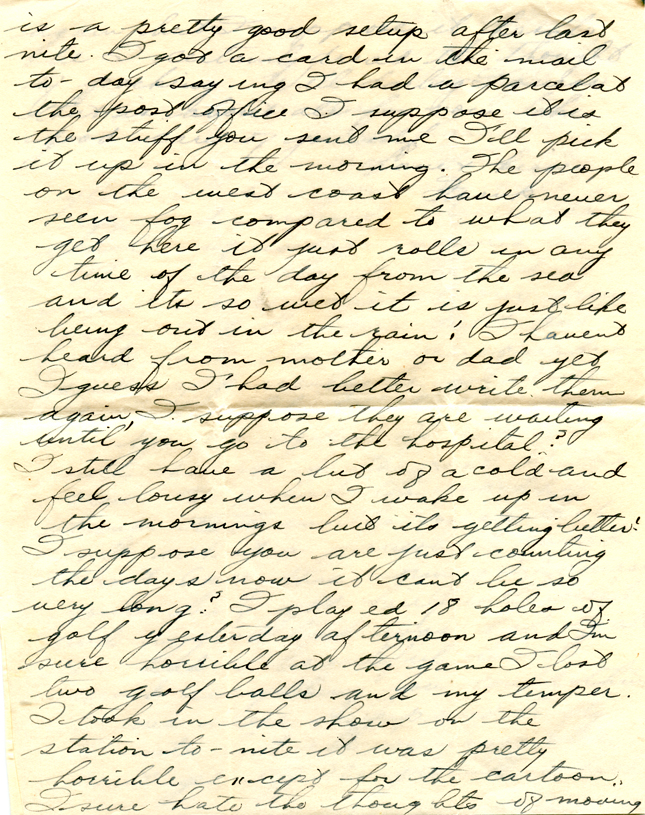 is a pretty good setup after last
nite. I got a card in the mail
to-day saying I had a parcel at
the post office I suppose it is
the stuff you sent me I'll pick
it up in the morning. The people
on the west coast have never
seen fog compared to what they
get here it just rolls in any
time of the day from the sea
and its so wet it is just like
being out in the rain! I havent
heard from mother or dad yet
I guess I had better write them
again, I suppose they are waiting
until you go to the hospital?
I still have a bit of a cold and
feel lousy when I wake up in
the mornings but its getting better!
I suppose you are just counting
the days now it cant be so
very long? I played 18 holes of
golf yesterday afternoon and I'm
sure horrible at the game I lost
two golf balls and my temper.
I took in the show on the
station to-nite it was pretty
horrible except for the cartoon.
I sure hate the thoughts of moving